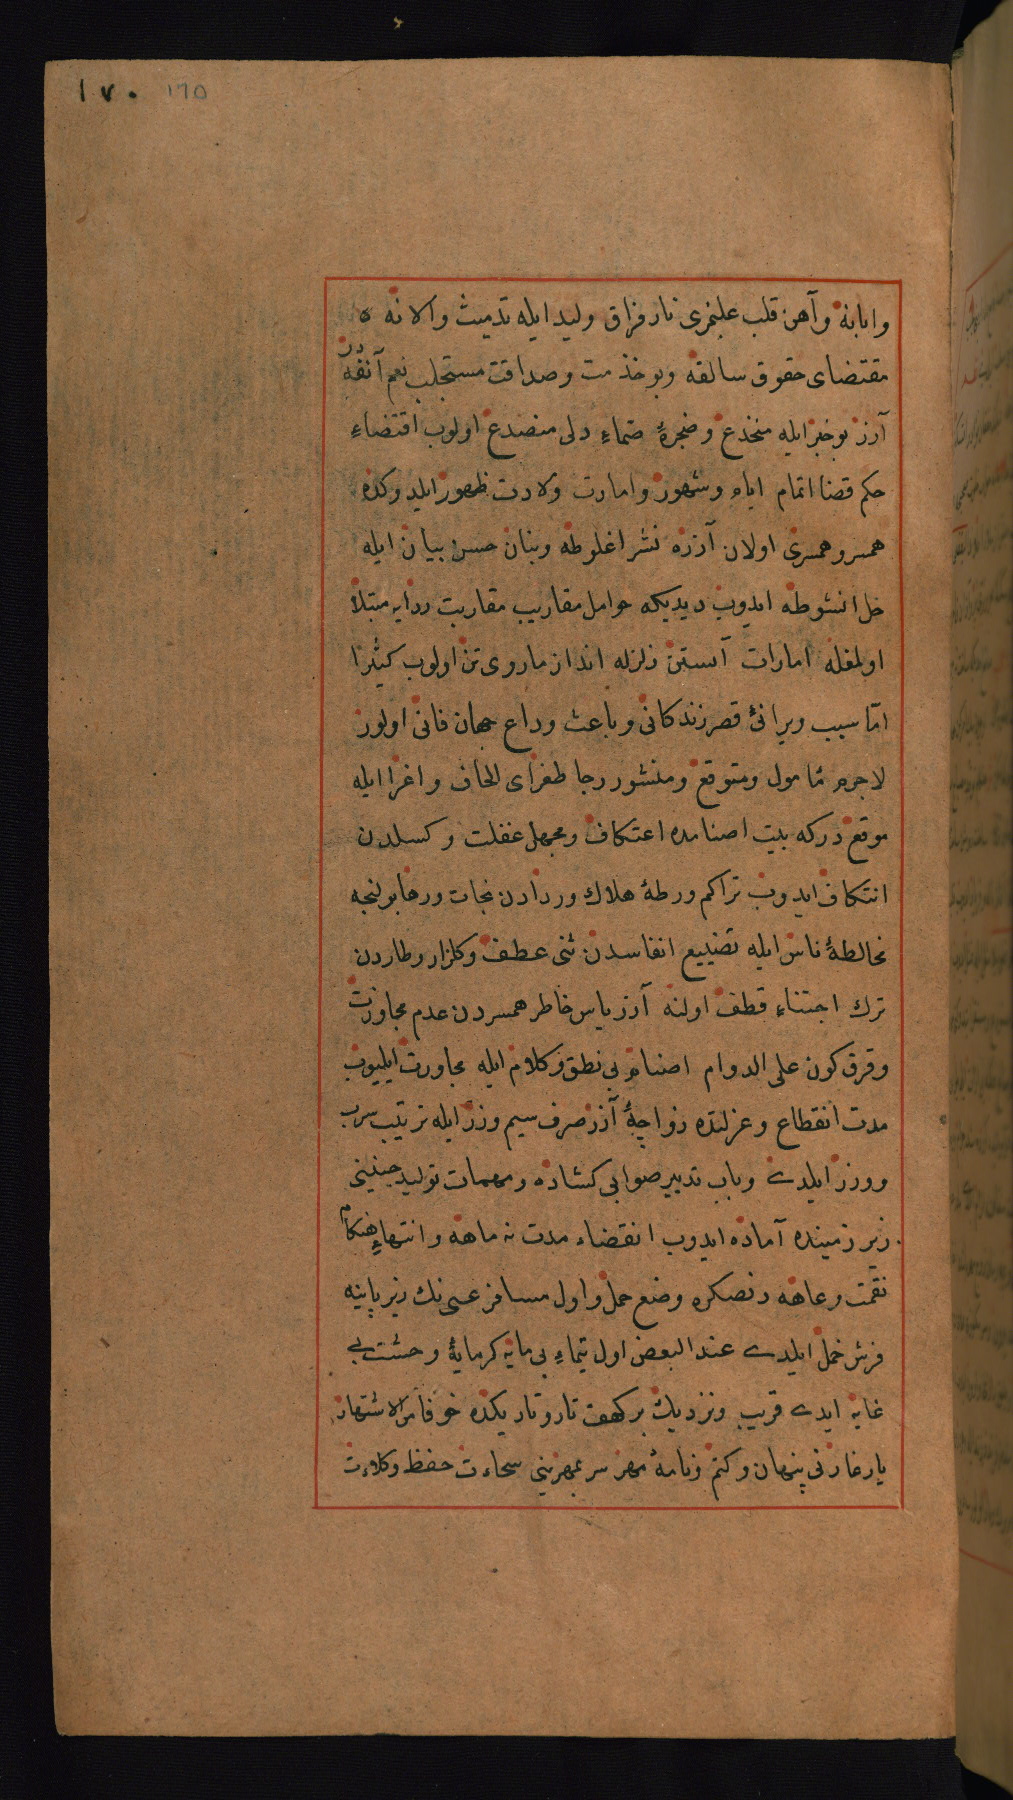 ١٧٠ ١٦٥
وابانهٔ وآهن قلب علنجری نار فراق ولید ایله تدمیث والانه ه
مقتضای حقوق سالفه وبو خذمت وصداقت مستجلب نعم آنفه در
آزر بو خبر ایله منخدع وضجرهٔ صماء دلی منصدع اولوب اقتضاء
حکم قضا اتمام ایام وشهور وامارت ولادت ظهور ایلدوکده
همسر وهمسری اولان آزره نشر اغلوطه وبنان حسن بیان ایله
حل انشوطه ایدوب دیدیکه حوامل مقاریب مقاربت ردایه مبتلا
اولمغله امارات آستن زلزله انداز ماروی تن اولوب کثیرا
اما سبب ویرانیٔ قصر زندکانی وباعث وداع جهان فانی اولور
لاجرم مأمول ومتوقع ومنشور رجا طغرای الحاف واغرا ایله
موقع درکه بیت اصنامده اعتکاف ومجهل غفلت وکسلدن
انتکاف ایدوب تراکم ورطهٔ هلاک وردادن نجات ورها بولنجه
مخالطهٔ ناس ایله تضییع انفاسدن ثنی عطف وکلزار وطاردن
ترك اجتناء قطف اولنه آزر پاس خاطر همسردن عدم مجاوزت
وقرق کون علی الدوام اصنام بی نطق وکلام ایله مجاورت ایلیوب
مدت انقطاع وعزلتده زواجهٔ آزر صرف سیم وزر ایله ترتیب سرب
ووزر ایلدی وباب تدبیر صوابی کشاده ومهمات تولید جنینی
زیر زمینده آماده ایدوب انقضاء مدت نه ماهه وانتهاء هنکام
نقمت وعاهه دنصکره وضع حمل واول مسافر عسی نك زیر پاینه
فرش خمل ایلدی عند البعض اول تیماء بی مایه کرمایهٔ وحشت بی
غایه ایدی قریب ونزدیك بر کهف تار وتاریکده خوفا من الاشتهار
یار غارنی پنهان وکتم ونامهٔ مهر سر بمهرینی سحاءت حفظ وکلاءت